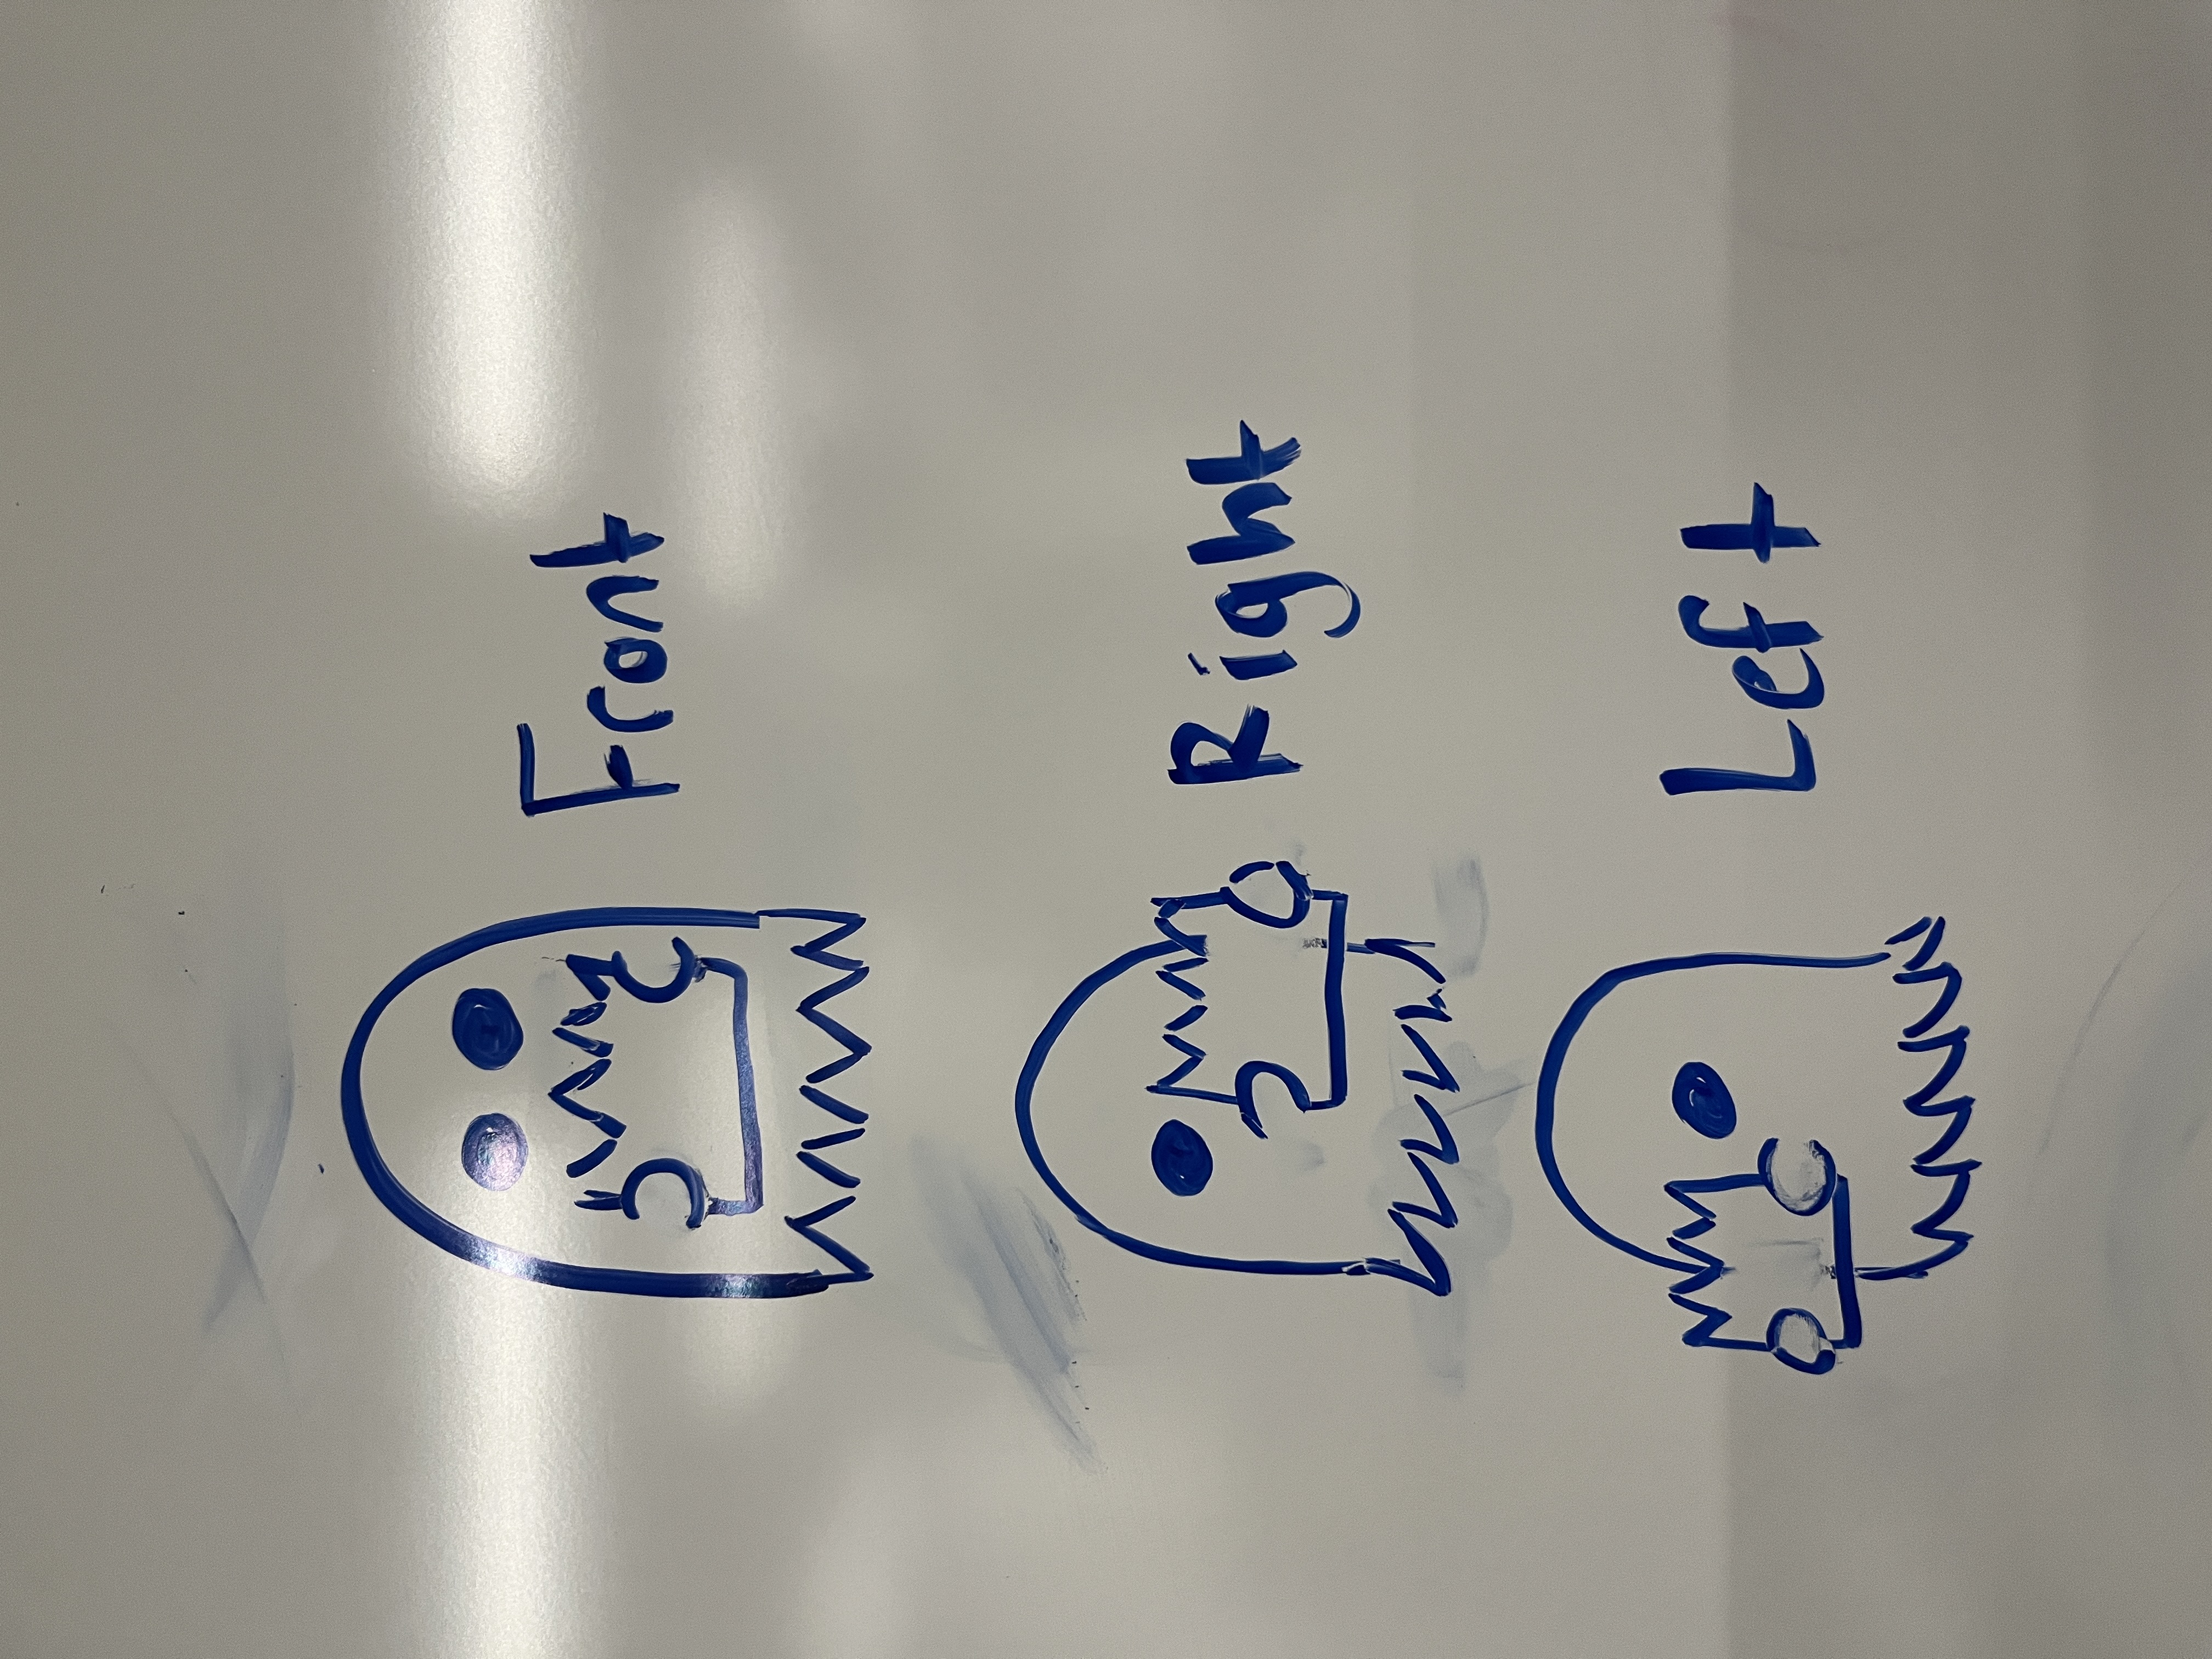 Front
Right
Left